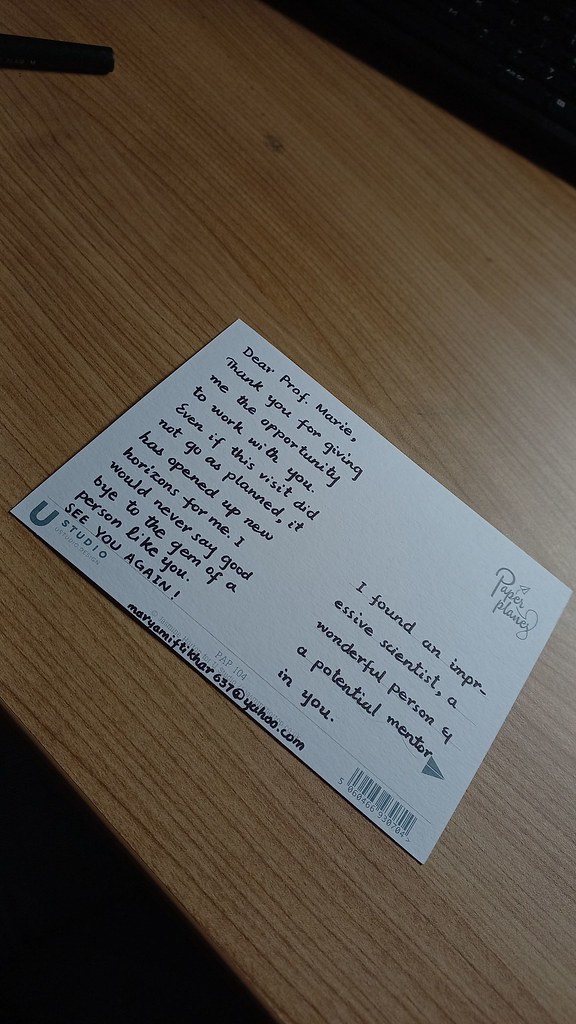 Dear Prof. Marie,
Thank you for giving
me the opportunity
to work with you.
Even if this visit did
not go as planned, it
has opened up new
horizons for me. I
would never say good
bye to the gem of a
person like you.
SEE YOU AGAIN!
U
STUDIO
maryamiftikhar657@yahoo.com
PAP 104
Paper
planes
I found an impr-
essive scientist, a
wonderful person &
a potential mentor
in you.
5 060466 930704 >